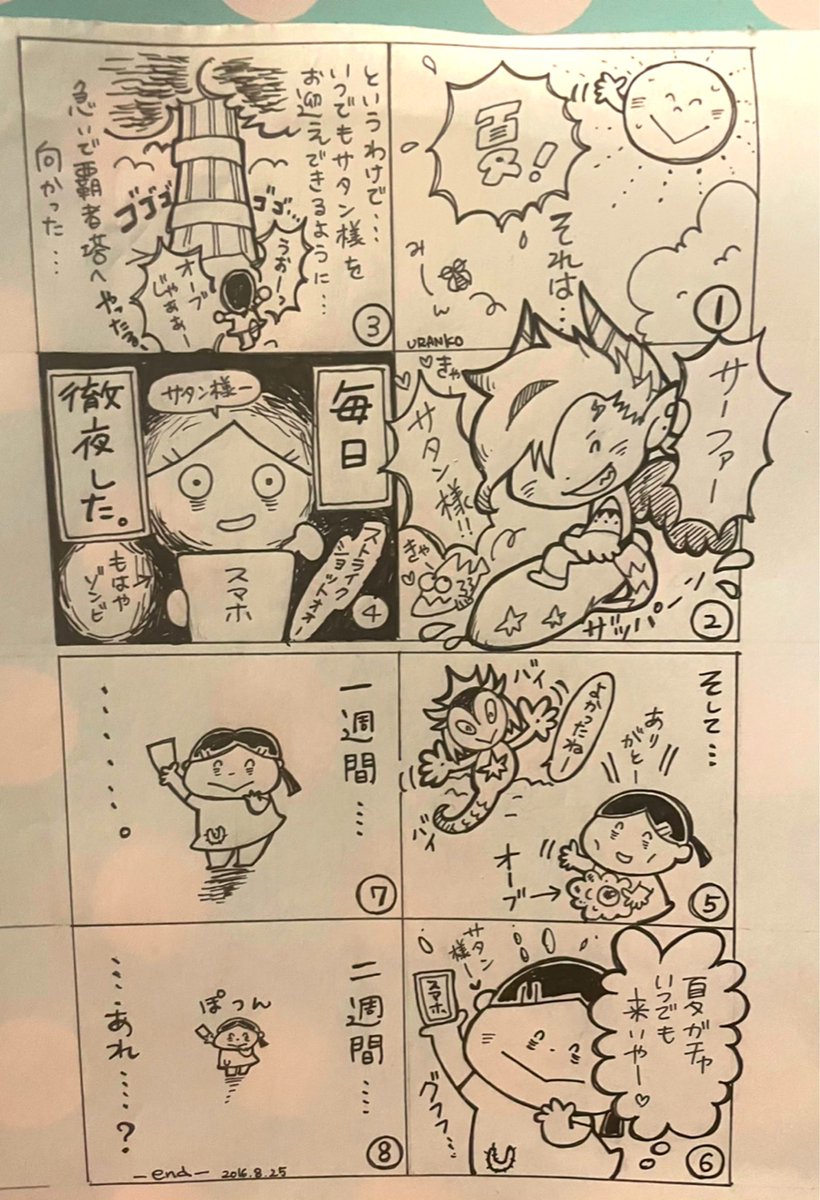 夏!
それは…
みーん
URANKO
①
サーファー
サタン様!!
きゃー
きゃー
ザッパーン
②
というわけで…
いつでもサタン様を
お迎えできるように…
急いで覇者塔へ
向かった…
ゴゴゴ
ゴゴ…
うおーっ
オーブ
じゃあぁー
やったるぅ
③
毎日
徹夜した。
サタン様ー
スマホ
もはや
ゾンビ
ストライク
ショットオォー
④
そして…
ありがとー
よかったねー
バイ
バイ
オーブ→
⑤
夏ガチャ
いつでも
来いやー♡
サタン様ー♡
スマホ
グフフ…
⑥
一週間……
……。
⑦
二週間……
ぽつん
……あれ……?
⑧
—end— 2016.8.25